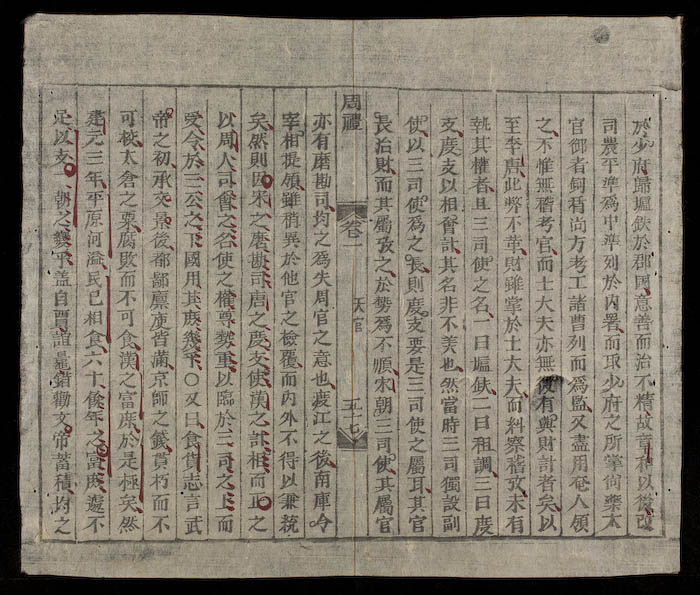 於少府歸塩鉄於郡國意善而治不精故章和以後改
司農平準爲中準列於内署而取少府之所掌尙藥太
官御者鉤盾尙方考工諸曹列而爲監又盡用奄人領
之不惟無稽考官而士大夫亦無有與財計者矣以
至李唐此弊不革財雖掌於士大夫而糾察稽攷未有
執其權者且三司使之名一曰塩鉄二曰租調三曰度
支度支以相會計其名非不美也然當時三司獨設副
使以三司使爲之長則度支要是三司使之屬耳其官
長治財而其屬攷之於勢爲不順宋朝三司使其屬官
周禮 卷一 天官 五十七
亦有磨勘司均之爲失周官之意也渡江之後南庫令
宰相提領雖稍異於他官之檢覆而内外不得以兼統
矣然則因宋之磨勘司唐之度支使漢之計相而正之
以周人司會之名使之權尊勢重以臨於三司之上而
受令於三公之下國用其庶幾乎〇又曰食貨志言武
帝之初承文景後都鄙廩庾皆滿京師之錢貫朽而不
可校太倉之粟腐敗而不可食漢之富庶於是極矣然
建元三年平原河溢民已相食六十餘年之富庶遽不
足以支一朝之變乎盖自賈誼鼂錯勸文帝蓄積均之